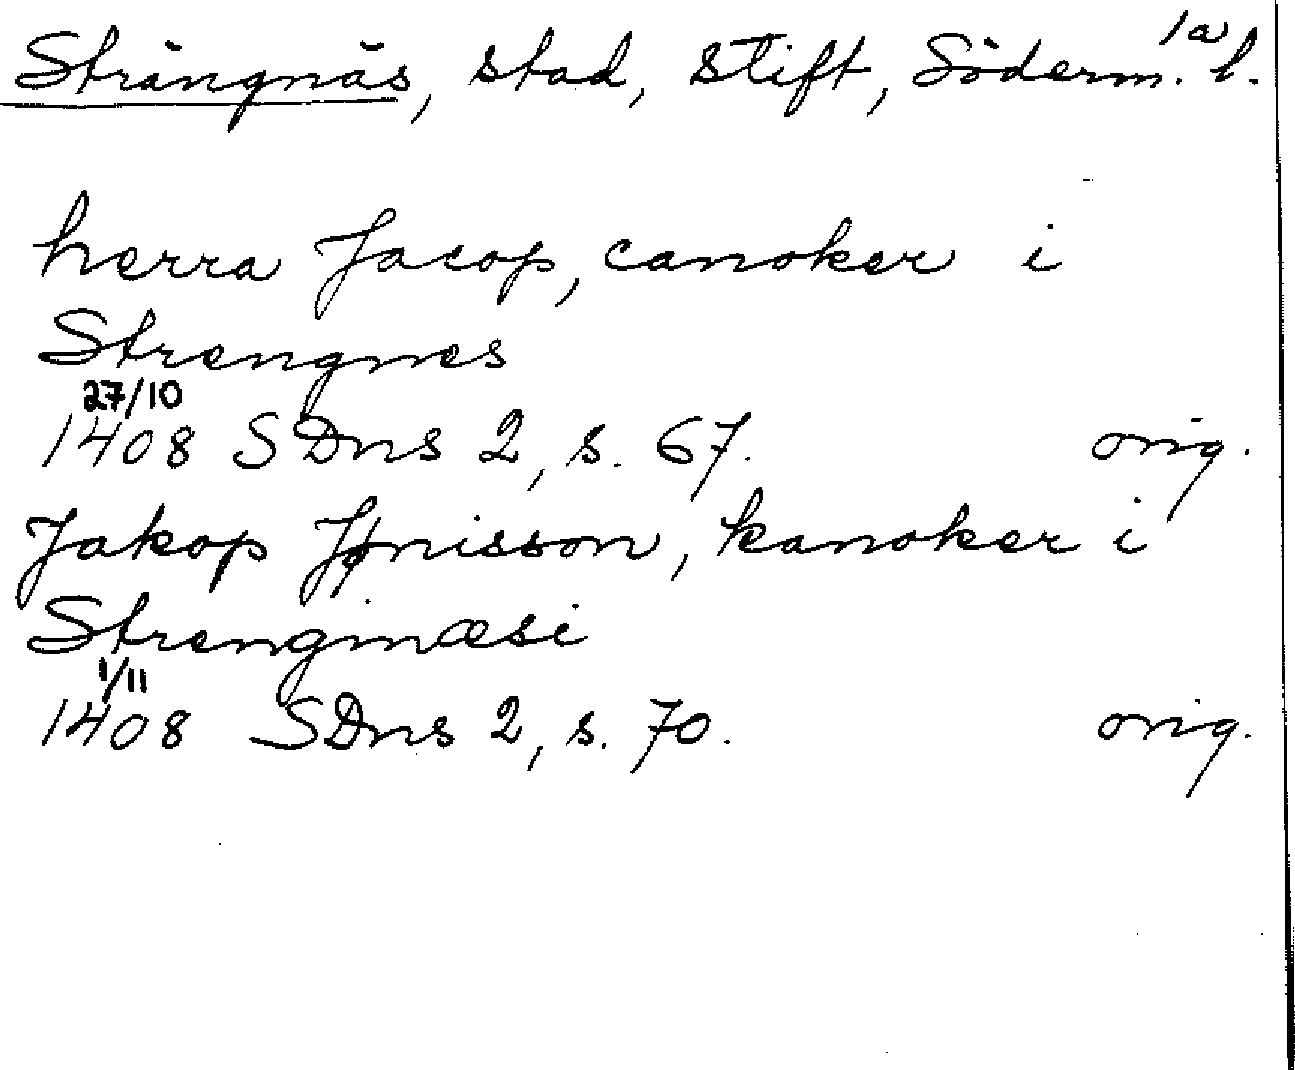 1a
Strängnäs, stad, stift, Söderm. l.
herra Jacop, canoker i
Strengnes
27/10
1408 SDns 2, s. 67. orig.
Jakop Jønisson, kanoker i
Strenginæsi
1/11
1408 SDns 2, s. 70. orig.